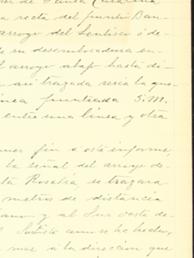 de Santa Catarina
a recta del punto Ban-
arroyo del Sentisco ó de
de su desembocadura en
l arroyo abajo hasta di-
así trazada sería la que
línea punteada S.M.
entre una línea y otra
fin á este informe
la señal del arroyo de
ta Rosalia se trazara
metros de distancia
y al Sur oeste de
como se ha hecho,
á la dirección que